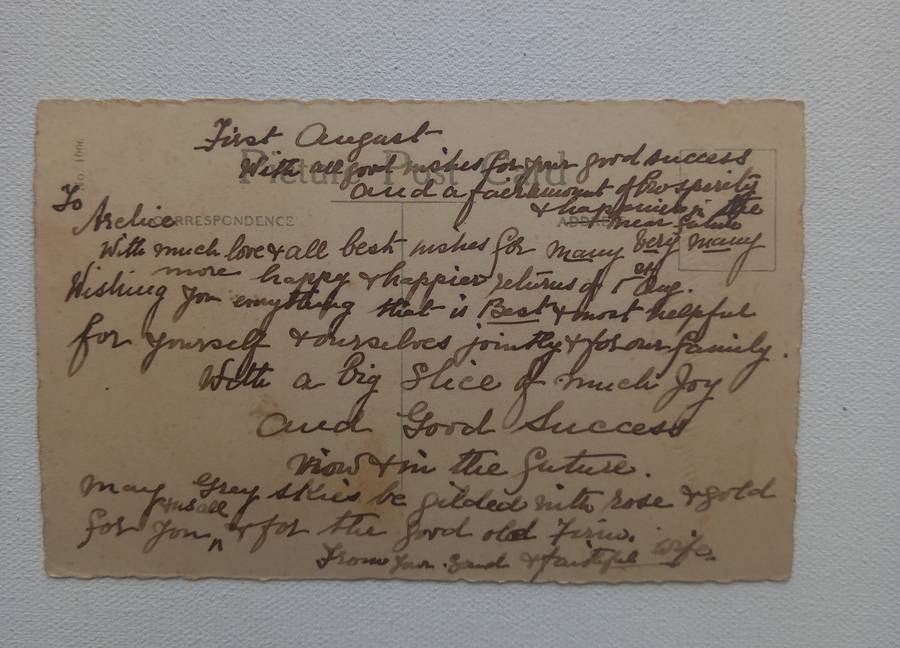 First August
Picture Post Card
With all good wishes for your good success
and a fair amount of Prosperity
& happiness in the
near future
No. 1006
To
CORRESPONDENCE
ADDRESS
With much love & all best wishes for many very many
more happy & happier returns of 1st Aug.
Wishing you everything that is Best & most helpful
for yourself & ourselves jointly & for our family.
With a big Slice of much Joy
and Good Success
Now & in the future.
May Grey skies be gilded with rose & gold
& us all
for you ^ & for the good old Firm.
From your & faithful wife.